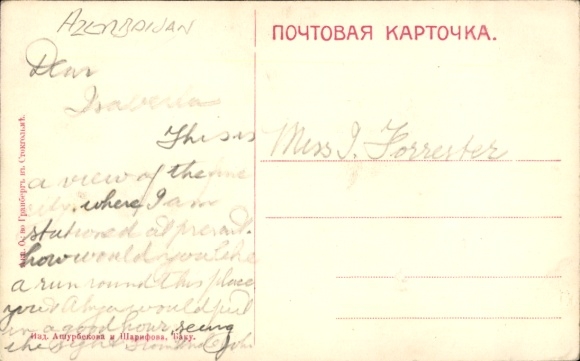 AZERBAIJAN
ПОЧТОВАЯ КАРТОЧКА.
Dear
Isabella
This is
a view of the
city where I am
stationed at present.
how would you like
a run round this place
you & would put
in a good hour seeing
the sight
Miss I. Forrester
Изд. О-во Гранбергъ въ Стокгольмѣ.
Изд. Ашурбекова и Шарифова, Баку.